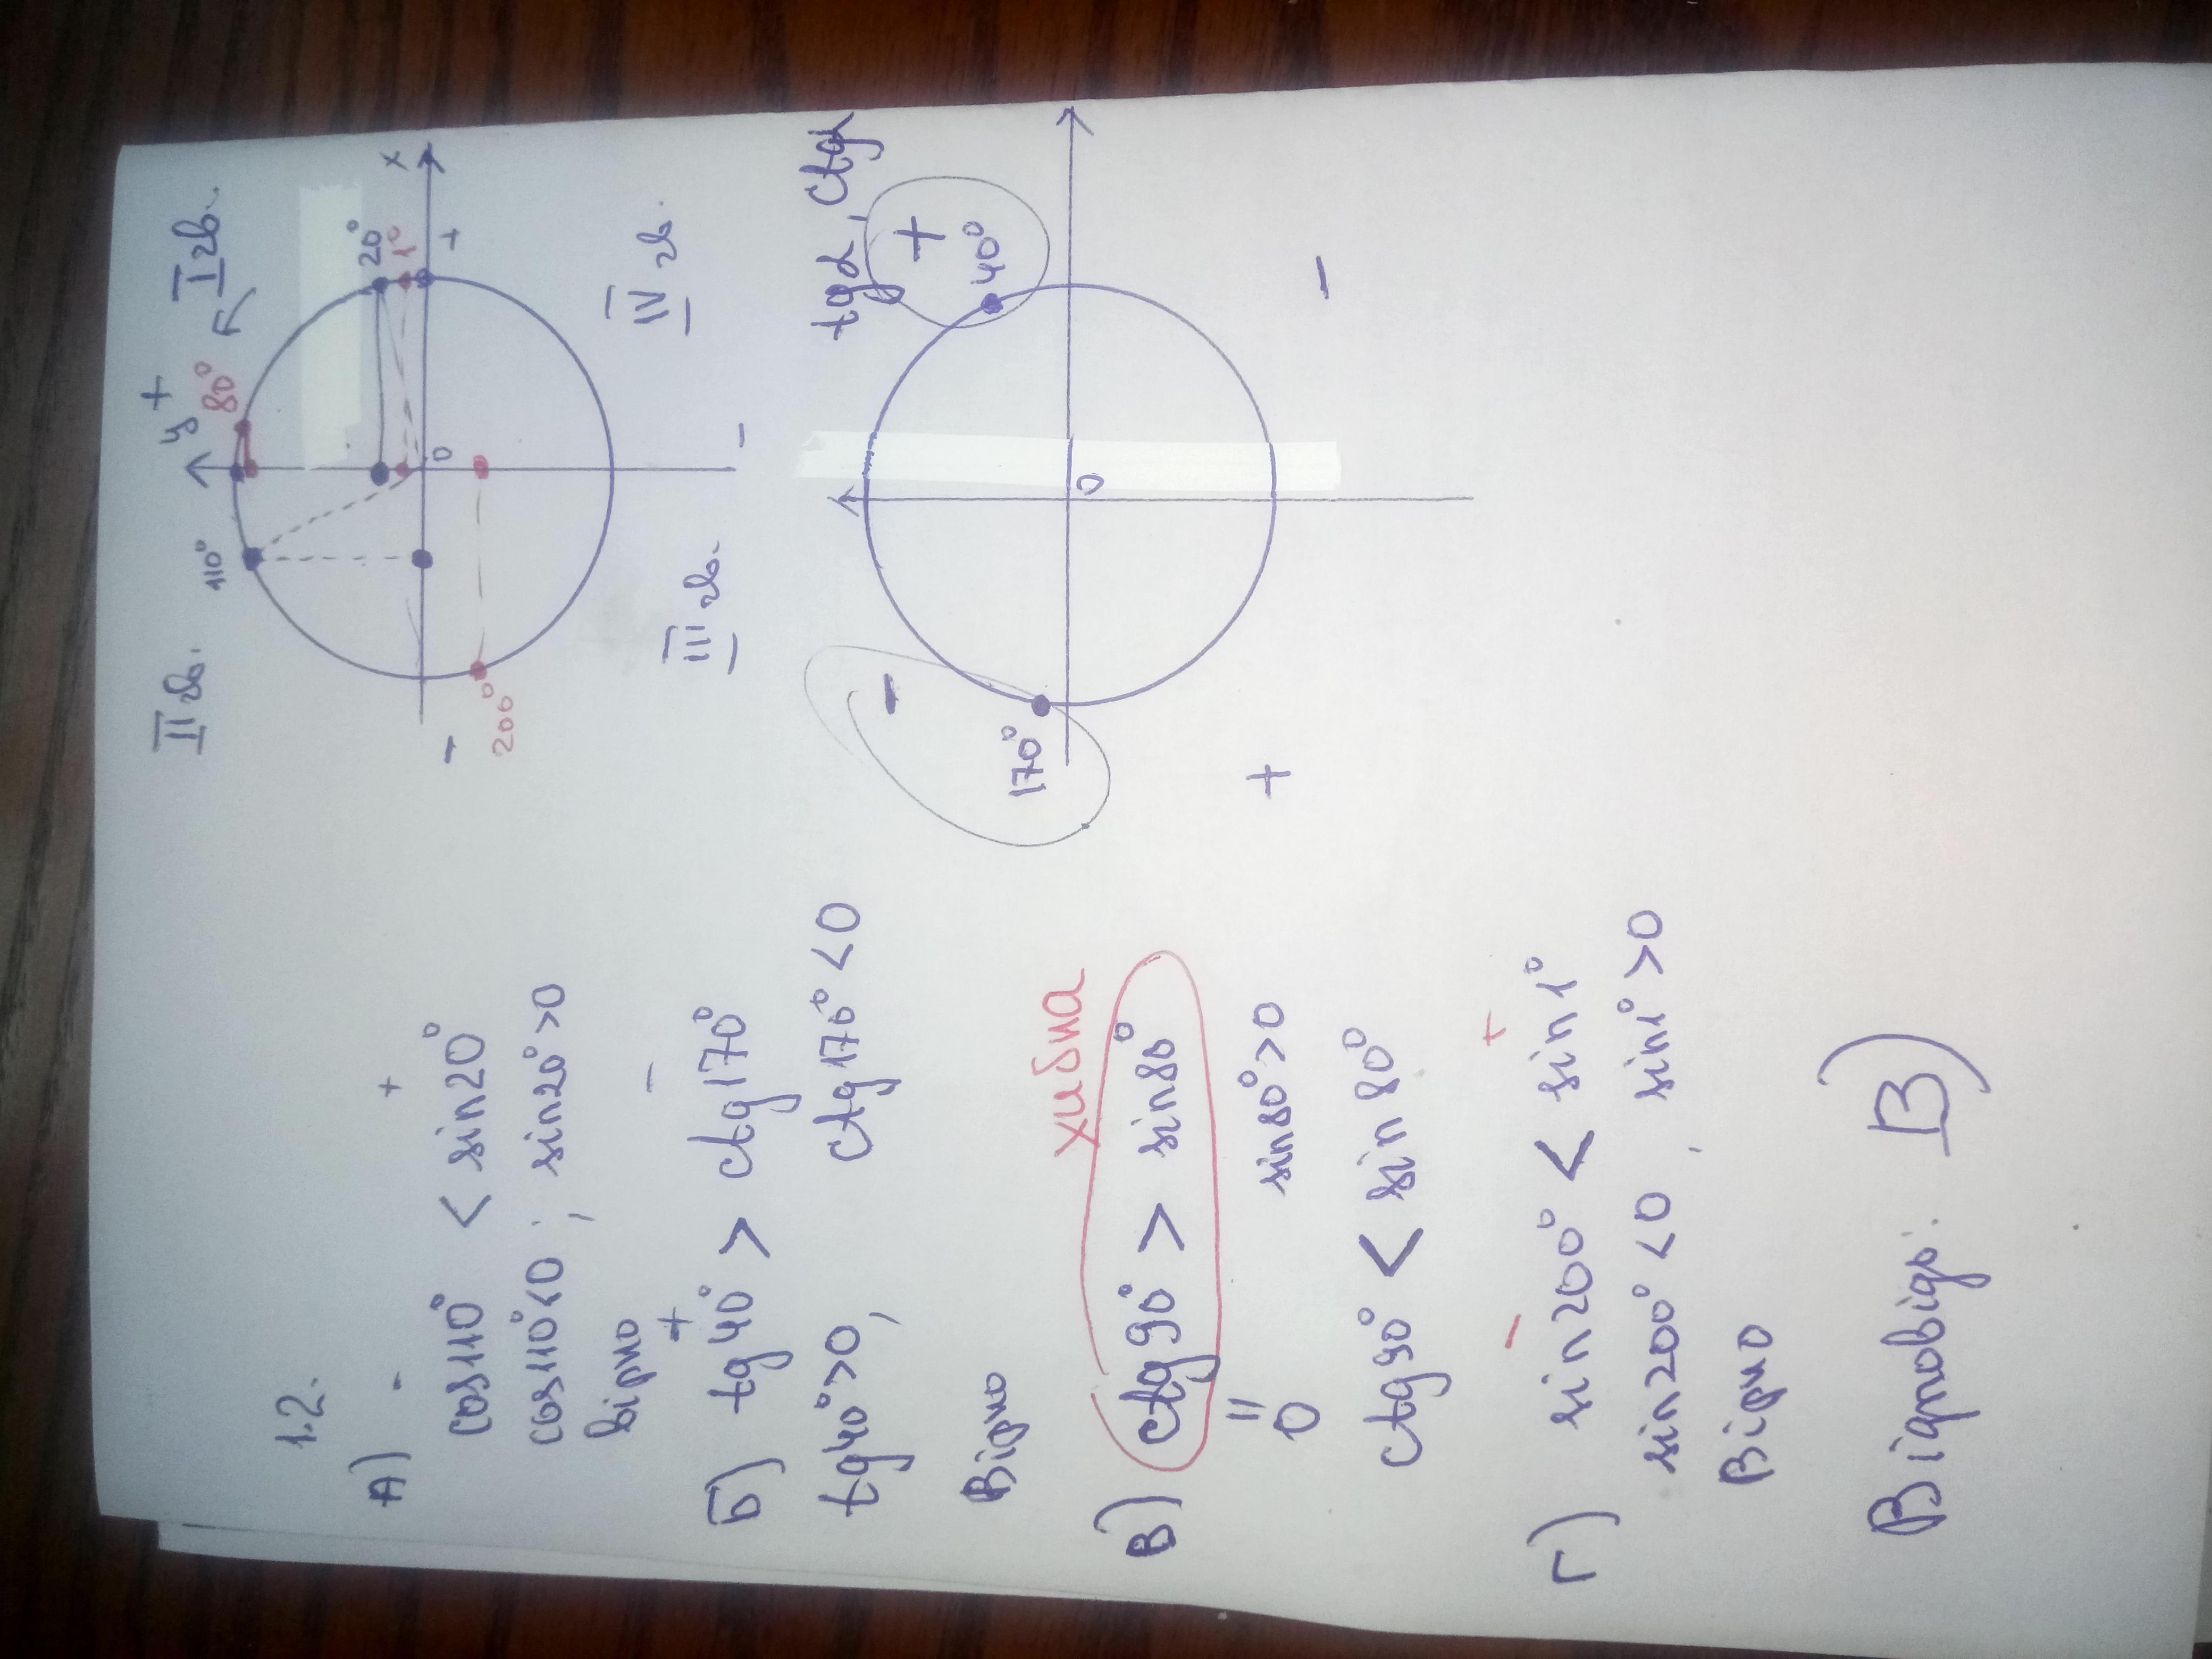 1.2.
А) - +
cos110° < sin20°
cos110°<0 ; sin20°>0
вірно
+ -
Б) tg40° > ctg170°
tg40°>0, ctg170°<0
Вірно
хибна
В) ctg90° > sin80°
=
0 sin80°>0
ctg90° < sin80°
- +
Г) sin200° < sin1°
sin200°<0, sin1°>0
Вірно
Відповідь: В)
II чв.
y +
80°
I чв.
110°
20°
1°
x
0
-
+
200°
III чв.
-
IV чв.
tgα, ctgα
-
+
40°
170°
0
+
-